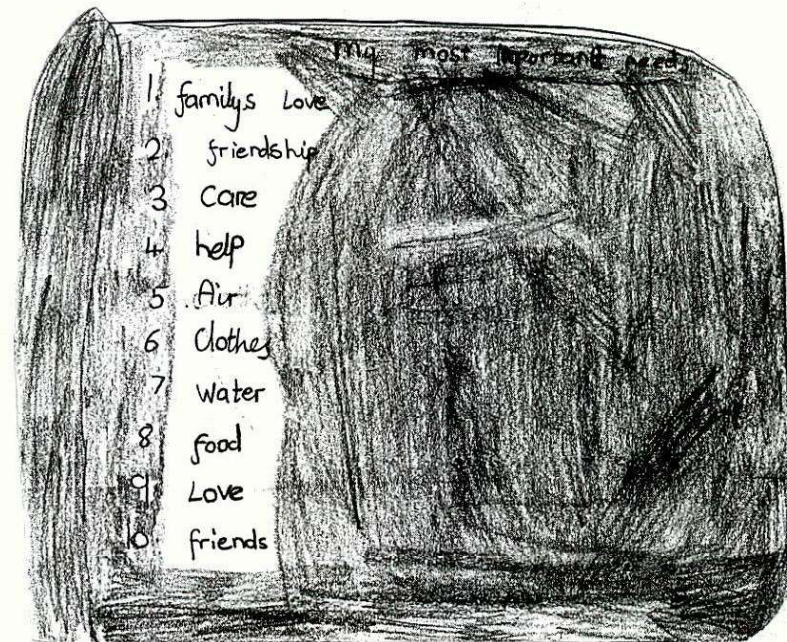 My most important needs
1 familys Love
2 friendship
3 Care
4 help
5 Air
6 Clothes
7 Water
8 food
9 Love
10 friends